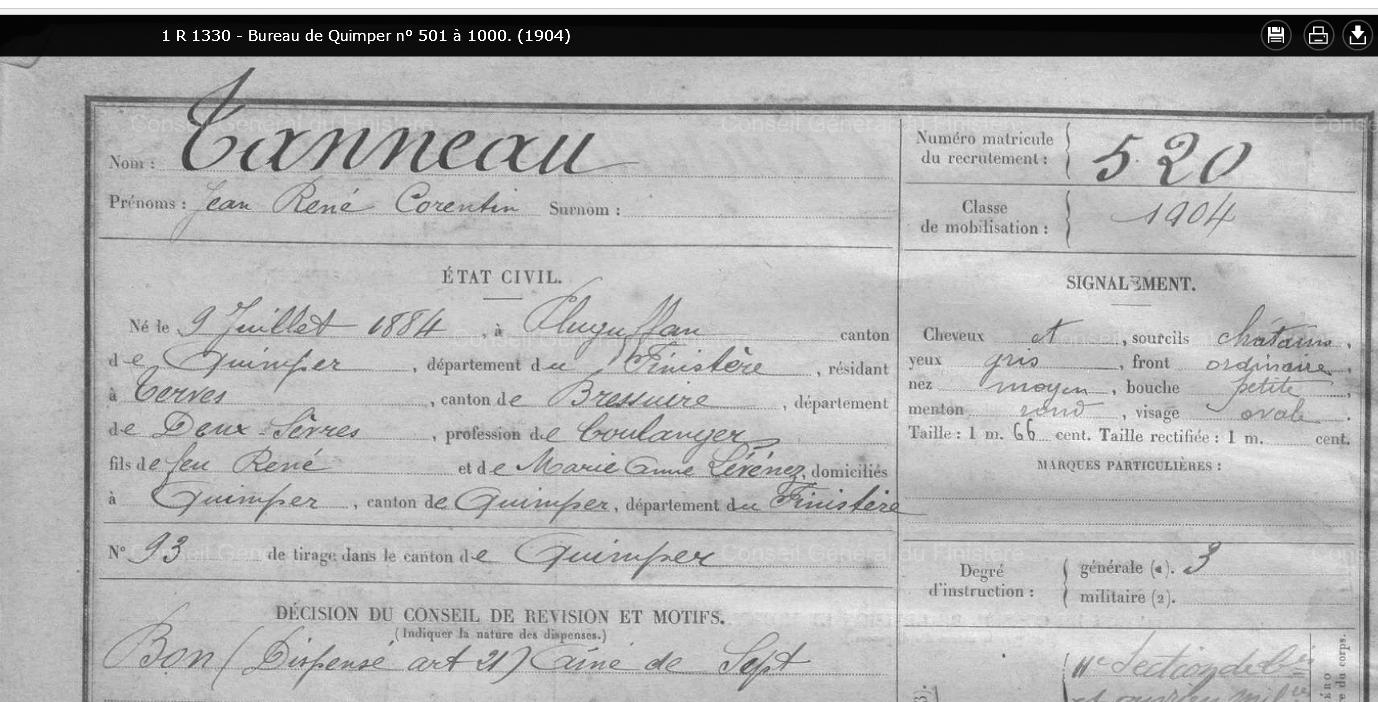 1 R 1330 - Bureau de Quimper n° 501 à 1000. (1904)
Conseil Général du Finistère
Conseil Général du Finistère
Nom : Tanneau
Prénoms : Jean René Corentin Surnom :
Numéro matricule
du recrutement : 520
Classe
de mobilisation : 1904
ÉTAT CIVIL.
Né le 9 Juillet 1884, à Pluguffan canton
de Quimper, département du Finistère, résidant
à Terves, canton de Bressuire, département
de Deux-Sèvres, profession de boulanger
fils de feu René et de Marie Anne Lérénez, domiciliés
à Quimper, canton de Quimper, département du Finistère
N° 93 de tirage dans le canton de Quimper
DÉCISION DU CONSEIL DE REVISION ET MOTIFS.
(Indiquer la nature des dispenses.)
Bon (Dispensé art 21) Ainé de Sept
SIGNALEMENT.
Cheveux et, sourcils châtains,
yeux gris, front ordinaire,
nez moyen, bouche petite,
menton rond, visage ovale.
Taille : 1 m. 66 cent. Taille rectifiée : 1 m. cent.
MARQUES PARTICULIÈRES :
Conseil Général du Finistère
Conseil Général du Finistère
Degré
d'instruction :
générale (1). 3
militaire (2).
11e Section de
et ouvriers
du corps.